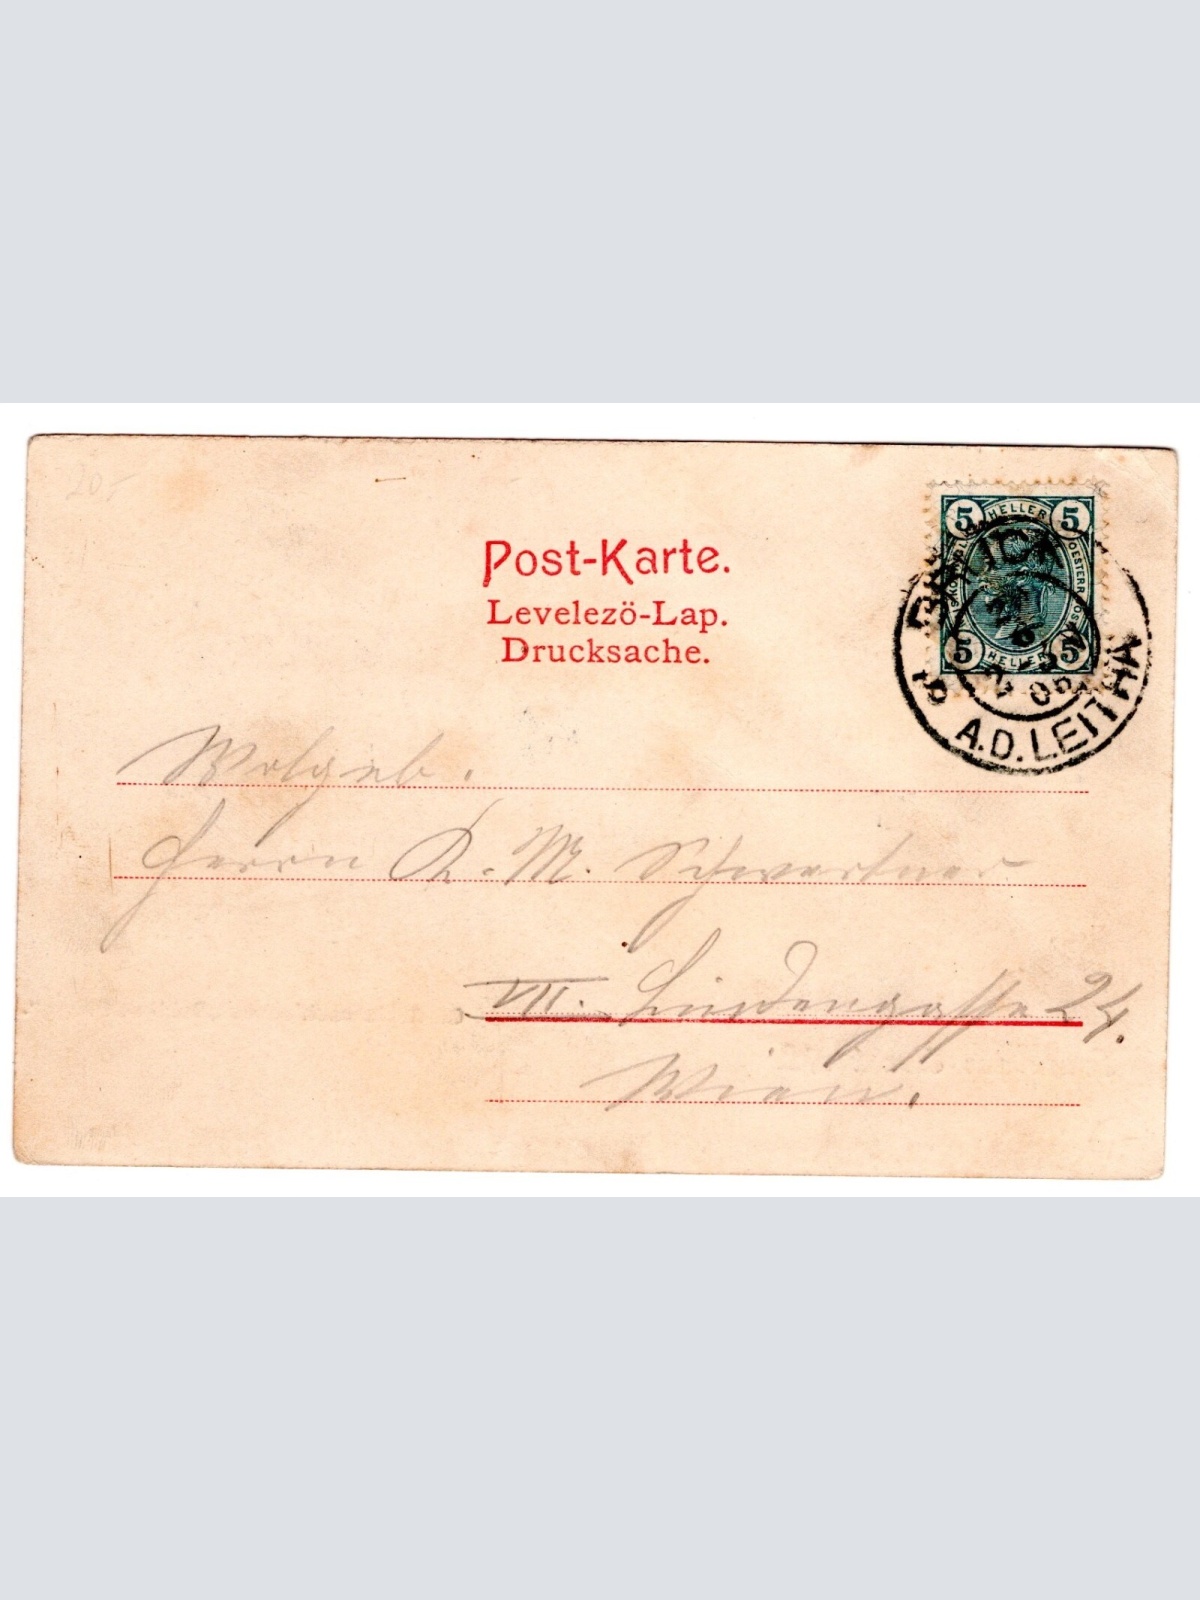 20.-
Post-Karte.
Levelezö-Lap.
Drucksache.
5 HELLER 5
5 HELLER 5
BRUCK
A.D. LEITHA
Wolgeb.
Herrn K. M. Schwertner
VII. Lindengasse 24.
Wien.